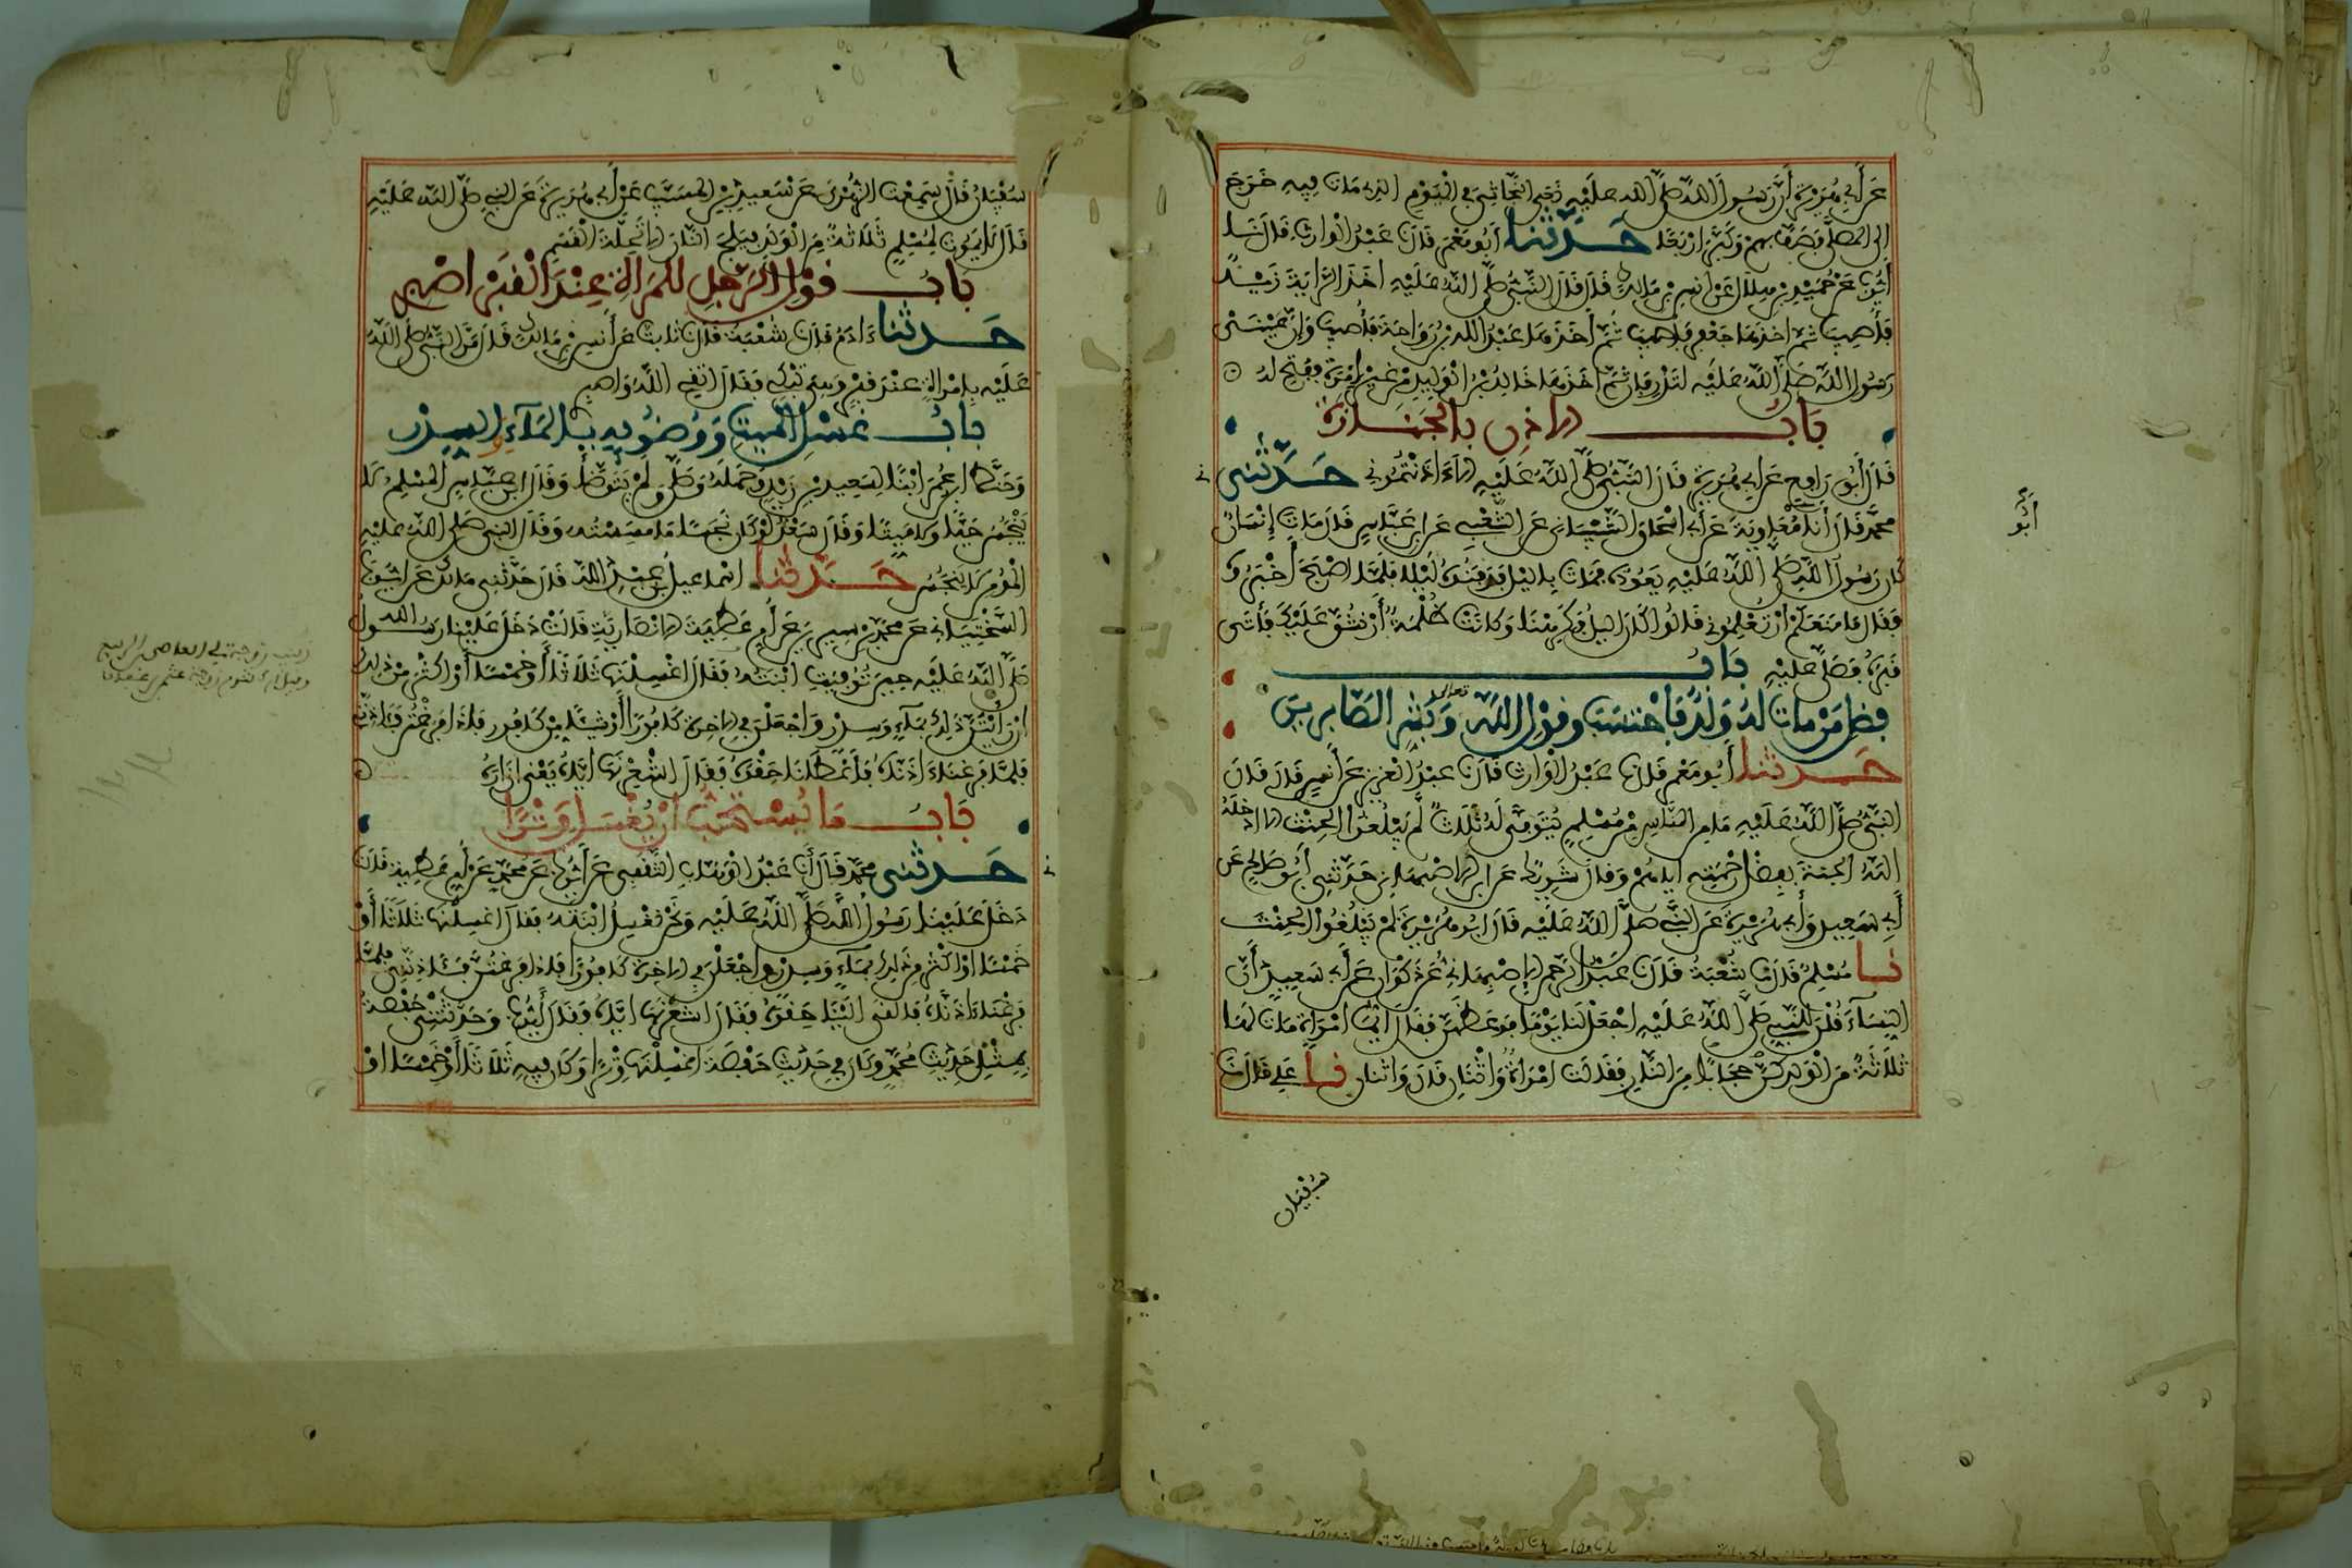 عَنْ أَبِي هُرَيْرَةَ أَنَّ رَسُولَ اللَّهِ صَلَّى اللَّهُ عَلَيْهِ نَعَى النَّجَاشِيَّ فِي الْيَوْمِ الذِي مَاتَ فِيهِ خَرَجَ
إِلَى الْمُصَلَّى فَصَفَّ بِهِمْ وَكَبَّرَ أَرْبَعًا حَدَّثَنَا أَبُو مَعْمَرٍ قَالَ نَا عَبْدُ الْوَارِثِ قَالَ نَا
أَيُّوبُ عَنْ حُمَيْدِ بْنِ هِلَالٍ عَنْ أَنَسِ بْنِ مَالِكٍ قَالَ قَالَ النَّبِيُّ صَلَّى اللَّهُ عَلَيْهِ أَخَذَ الرَّايَةَ زَيْدٌ
فَأُصِيبَ ثُمَّ أَخَذَهَا جَعْفَرٌ فَأُصِيبَ ثُمَّ أَخَذَهَا عَبْدُ اللَّهِ بْنُ رَوَاحَةَ فَأُصِيبَ وَإِنَّ عَيْنَيْ
رَسُولِ اللَّهِ صَلَّى اللَّهُ عَلَيْهِ لَتَذْرِفَانِ ثُمَّ أَخَذَهَا خَالِدُ بْنُ الْوَلِيدِ مِنْ غَيْرِ إِمْرَةٍ فَفُتِحَ لَهُ
بَابُ الإِذْنِ بِالْجَنَازَةِ
قَالَ أَبُو رَافِعٍ عَنْ أَبِي هُرَيْرَةَ قَالَ النَّبِيُّ صَلَّى اللَّهُ عَلَيْهِ أَلَا ءَاذَنْتُمُونِي حَدَّثَنِي
مُحَمَّدٌ قَالَ أَنَا مُعَاوِيَةَ عَنْ أَبِي إِسْحَاقَ الشَّيْبَانِي عَنِ الشَّعْبِي عَنِ ابْنِ عَبَّاسٍ قَالَ مَاتَ إِنْسَانٌ
أَبُو
كَانَ رَسُولُ اللَّهِ صَلَّى اللَّهُ عَلَيْهِ يَعُودُهُ فَمَاتَ بِاللَّيْلِ فَدَفَنُوهُ لَيْلًا فَلَمَّا أَصْبَحَ أَخْبَرُوهُ
فَقَالَ مَا مَنَعَكُمْ أَنْ تُعْلِمُونِي قَالُوا كَانَ اللَّيْلُ فَكَرِهْنَا وَكَانَتْ ظُلْمَةٌ أَنْ نَشُقَّ عَلَيْكَ فَأَتَى
قَبْرَهُ فَصَلَّى عَلَيْهِ بَابُ
فَضْلِ مَنْ مَاتَ لَهُ وَلَدٌ فَاحْتَسَبَ وَقَوْلِ اللَّهِ تعالى وَبَشِّرِ الصَّابِرِينَ
حَدَّثَنَا أَبُو مَعْمَرٍ قَالَ نَا عَبْدُ الْوَارِثِ قَالَ نَا عَبْدُ الْعَزِيزِ عَنْ أَنَسٍ قَالَ قَالَ
النَّبِيُّ صَلَّى اللَّهُ عَلَيْهِ مَا مِنَ النَّاسِ مِنْ مُسْلِمٍ يُتَوَفَّى لَهُ ثَلَاثٌ لَمْ يَبْلُغُوا الْحِنْثَ إِلَّا أَدْخَلَهُ
اللَّهُ الْجَنَّةَ بِفَضْلِ رَحْمَتِهِ إِيَّاهُمْ وَقَالَ شَرِيكٌ عَنِ ابْنِ الْأَصْبَهَانِي حَدَّثَنِي أَبُو صَالِحٍ عَنْ
أَبِي سَعِيدٍ وَأَبِي هُرَيْرَةَ عَنِ النَّبِيِّ صَلَّى اللَّهُ عَلَيْهِ قَالَ أَبُو هُرَيْرَةَ لَمْ يَبْلُغُوا الْحِنْثَ
نَا مُسْلِمٌ قَالَ نَا شُعْبَةُ قَالَ نَا عَبْدُ الرَّحْمَنِ الْأَصْبَهَانِي عَنْ ذَكْوَانَ عَنْ أَبِي سَعِيدٍ أَنَّ
النِّسَاءَ قُلْنَ لِلنَّبِيِّ صَلَّى اللَّهُ عَلَيْهِ اجْعَلْ لَنَا يَوْمًا فَوَعَظَهُنَّ فَقَالَ أَيُّمَا امْرَأَةٍ مَاتَ لَهَا
ثَلَاثَةٌ مِنَ الْوَلَدِ كُنَّ حِجَابًا مِنَ النَّارِ فَقَالَتْ امْرَأَةٌ وَاثْنَانِ قَالَ وَاثْنَانِ نَا عَلِي قَالَ نَا
سُفْيَان
سُفْيَانُ قَالَ سَمِعْتُ الزُّهْرِيَّ عَنْ سَعِيدِ بْنِ الْمُسَيَّبِ عَنْ أَبِي هُرَيْرَةَ عَنِ النَّبِيِّ صَلَّى اللَّهُ عَلَيْهِ
قَالَ لَا يَمُوتُ لِمُسْلِمٍ ثَلَاثَةٌ مِنَ الْوَلَدِ فَيَلِجَ النَّارَ إِلَّا تَحِلَّةَ الْقَسَمِ
بَابُ قَوْلِ الرَّجُلِ لِلْمَرْأَةِ عِنْدَ الْقَبْرِ اصْبِرِي
حَدَّثَنَا ءَادَمُ قَالَ نَا شُعْبَةُ قَالَ نَا ثَابِتٌ عَنْ أَنَسِ بْنِ مَالِكٍ قَالَ مَرَّ النَّبِيُّ صَلَّى اللَّهُ
عَلَيْهِ بِامْرَأَةٍ عِنْدَ قَبْرٍ وَهِيَ تَبْكِي فَقَالَ اتَّقِي اللَّهَ وَاصْبِرِي
بَابُ غَسْلِ الْمَيِّتِ وَوُضُوئِهِ بِالْمَاءِ وَالسِّدْرِ
وَحَنَّطَ ابْنُ عُمَرَ ابْنًا لِسَعِيدِ بْنِ زَيْدٍ وَحَمَلَهُ وَصَلَّى وَلَمْ يَتَوَضَّأْ وَقَالَ ابْنُ عَبَّاسٍ الْمُسْلِمُ لَا
يَنْجُسُ حَيًّا وَلَا مَيِّتًا وَقَالَ سَعْدٌ لَوْ كَانَ نَجَسًا مَا مَسِسْتُهُ وَقَالَ النَّبِيُّ صَلَّى اللَّهُ عَلَيْهِ
الْمُؤْمِنُ لَا يَنْجُسُ حَدَّثَنَا إِسْمَاعِيلُ بْنُ عَبْدِ اللَّهِ قَالَ حَدَّثَنِي مَالِكٌ عَنْ أَيُّوبَ
السَّخْتِيَانِي عَنْ مُحَمَّدِ بْنِ سِيرِينَ عَنْ أُمِّ عَطِيَّةَ الْأَنْصَارِيَّةِ قَالَتْ دَخَلَ عَلَيْنَا رَسُولُ اللَّهِ
صَلَّى اللَّهُ عَلَيْهِ حِينَ تُوُفِّيَتِ ابْنَتُهُ فَقَالَ اغْسِلْنَهَا ثَلَاثًا أَوْ خَمْسًا أَوْ أَكْثَرَ مِنْ ذَلِكَ
زينب زوجة أبي العاصي بن الربيع
وقيل أم كلثوم زوجة عثمان بن عفان
إِنْ رَأَيْتُنَّ ذَلِكَ بِمَاءٍ وَسِدْرٍ وَاجْعَلْنَ فِي الْآخِرَةِ كَافُورًا أَوْ شَيْئًا مِنْ كَافُورٍ فَإِذَا فَرَغْتُنَّ فَآذِنَّنِي
فَلَمَّا فَرَغْنَا ءَاذَنَّاهُ فَأَعْطَانَا حِقْوَهُ فَقَالَ أَشْعِرْنَهَا إِيَّاهُ يَعْنِي إِزَارَهُ
بَابُ مَا يُسْتَحَبُّ أَنْ يُغْسَلَ وِتْرًا
حَدَّثَنِي مُحَمَّدٌ قَالَ نَا عَبْدُ الْوَهَّابِ الثَّقَفِي عَنْ أَيُّوبَ عَنْ مُحَمَّدٍ عَنْ أُمِّ عَطِيَّةَ قَالَتْ
دَخَلَ عَلَيْنَا رَسُولُ اللَّهِ صَلَّى اللَّهُ عَلَيْهِ وَنَحْنُ نَغْسِلُ ابْنَتَهُ فَقَالَ اغْسِلْنَهَا ثَلَاثًا أَوْ
خَمْسًا أَوْ أَكْثَرَ مِنْ ذَلِكَ بِمَاءٍ وَسِدْرٍ وَاجْعَلْنَ فِي الْآخِرَةِ كَافُورًا فَإِذَا فَرَغْتُنَّ فَآذِنَّنِي فَلَمَّا
فَرَغْنَا ءَاذَنَّاهُ فَأَلْقَى إِلَيْنَا حِقْوَهُ فَقَالَ أَشْعِرْنَهَا إِيَّاهُ وَقَالَ أَيُّوبُ وَحَدَّثَتْنِي حَفْصَةُ
بِمِثْلِ حَدِيثِ مُحَمَّدٍ وَكَانَ فِي حَدِيثِ حَفْصَةَ اغْسِلْنَهَا وِتْرًا وَكَانَ فِيهِ ثَلَاثًا أَوْ خَمْسًا أَوْ